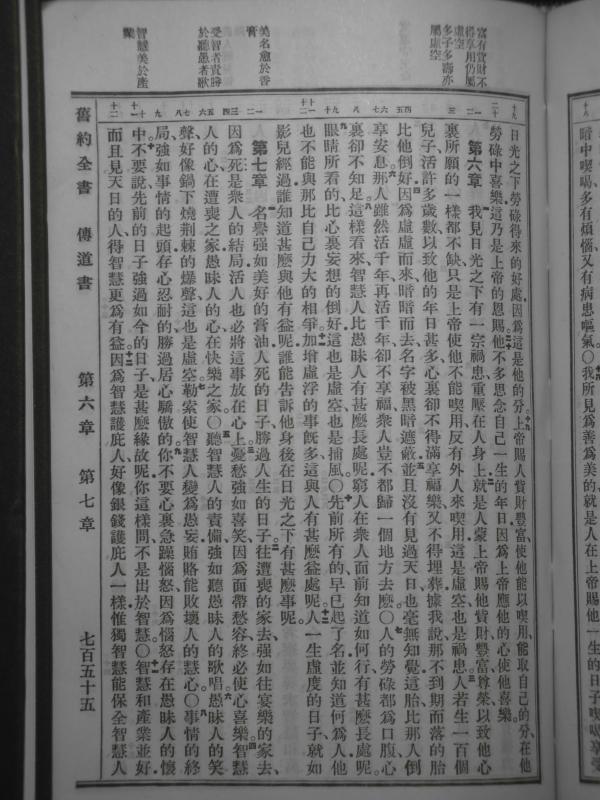 富有貲財不
得享用仍屬
虛空
多子多壽亦
屬虛空
美名愈於香
膏
受智者責勝
於聽愚者歌
智慧美於產
業
日光之下勞碌得來的好處因爲這是他的分上帝賜人貲財豐富使他能以喫用能取自己的分在他
勞碌中喜樂這乃是上帝的恩賜他不多思念自己一生的年日因爲上帝應他的心使他喜樂
第六章 我見日光之下有一宗禍患重壓在人身上就是人蒙上帝賜他貲財豐富尊榮以致他心
裏所願的一樣都不缺只是上帝使他不能喫用反有外人來喫用這是虛空也是禍患人若生一百個
兒子活許多歲數以致他的年日甚多心裏卻不得滿享福樂又不得埋葬據我說那不到期而落的胎
比他倒好因爲虛虛而來暗暗而去名字被黑暗遮蔽並且沒有見過天日也毫無知覺這胎比那人倒
享安息那人雖然活千年再活千年卻不享福衆人豈不都歸一個地方去麽〇人的勞碌都爲口腹心
裏卻不知足這樣看來智慧人比愚昧人有甚麽長處呢窮人在衆人面前知道如何行有甚麽長處呢
眼睛所看的比心裏妄想的倒好這也是虛空也是捕風〇先前所有的早已起了名並知道何爲人他
也不能與那比自己力大的相爭加增虛浮的事旣多這與人有甚麽益處呢人一生虛度的日子就如
影兒經過誰知道甚麽與他有益呢誰能告訴他身後在日光之下有甚麽事呢
第七章 名譽强如美好的膏油人死的日子勝過人生的日子往遭喪的家去强如往宴樂的家去
因爲死是衆人的結局活人也必將這事放在心上憂愁强如喜笑因爲面帶愁容終必使心喜樂智慧
人的心在遭喪之家愚昧人的心在快樂之家〇聽智慧人的責備强如聽愚昧人的歌唱愚昧人的笑
聲好像鍋下燒荆棘的爆聲這也是虛空勒索使智慧人變爲愚妄賄賂能敗壞人的慧心〇事情的終
局强如事情的起頭存心忍耐的勝過居心驕傲的你不要心裏急躁惱怒因爲惱怒存在愚昧人的懷
中不要說先前的日子强過如今的日子是甚麽緣故呢你這樣問不是出於智慧〇智慧和產業並好
而且見天日的人得智慧更爲有益因爲智慧護庇人好像銀錢護庇人一樣惟獨智慧能保全智慧人
舊約全書 傳道書 第六章 第七章 七百五十五